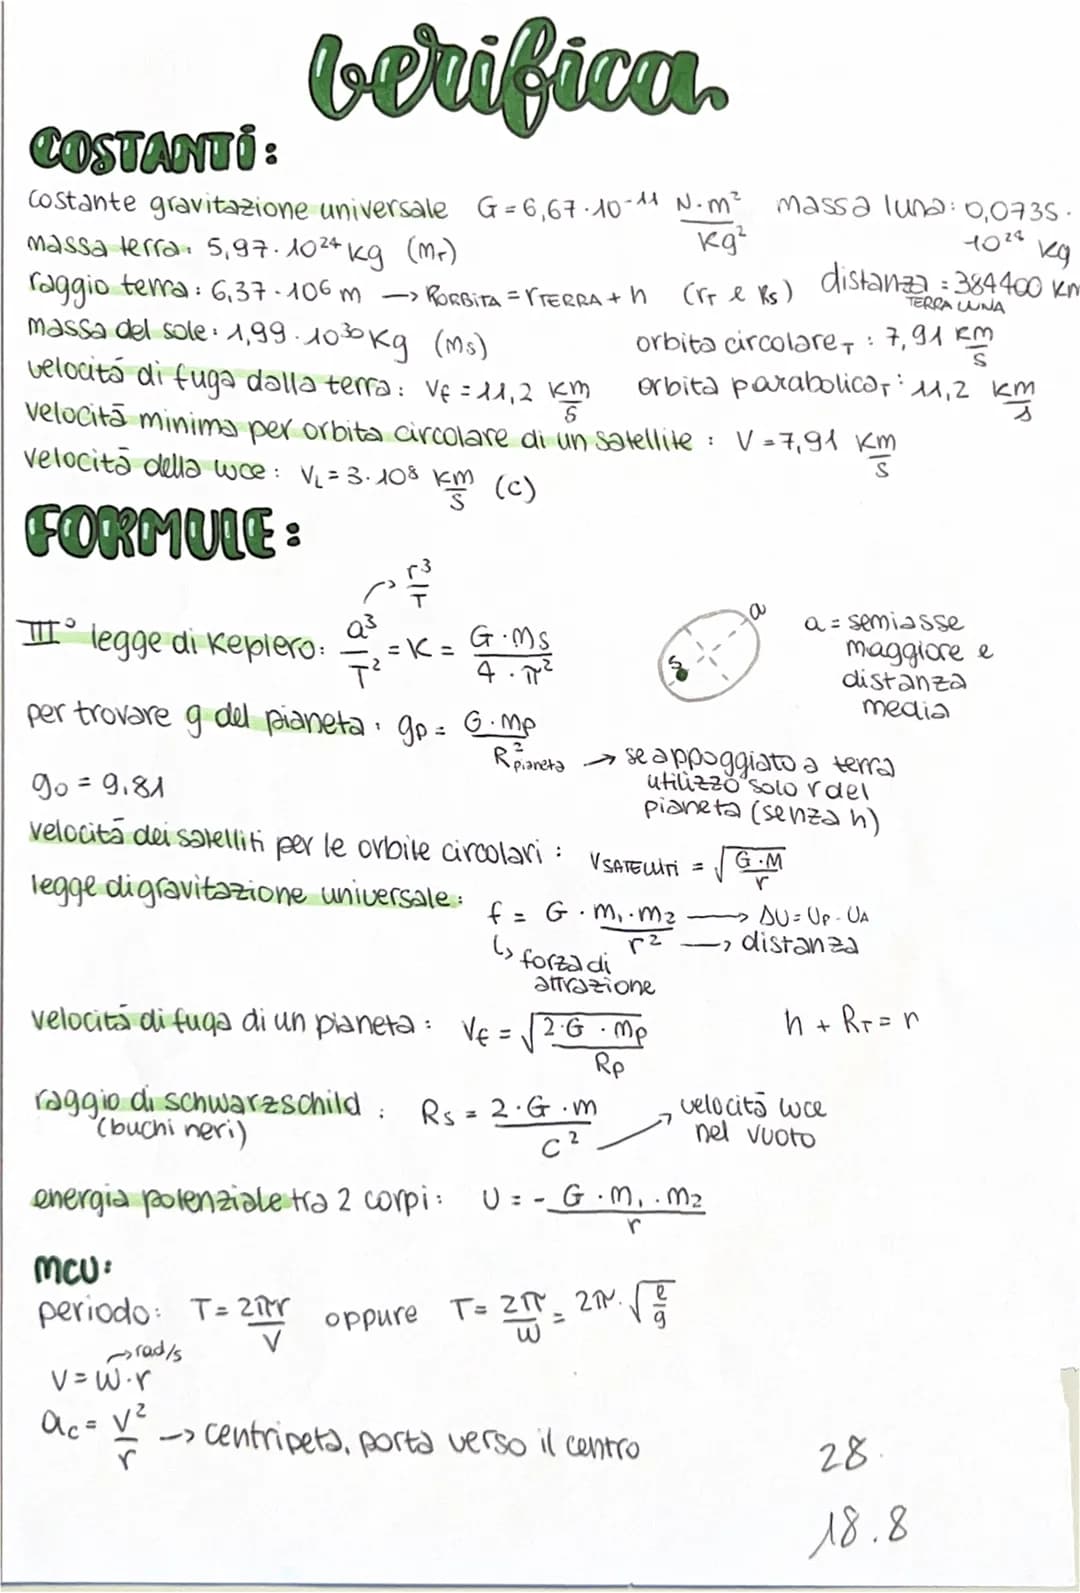 verifica
COSTANTI:
costante gravitazione universale G = 6,67·10⁻¹¹ N·m²/kg² massa luna: 0,0735·10²⁴ kg
massa terra: 5,97·10²⁴ kg (Mᴛ)
raggio terra: 6,37·10⁶ m → RORBITA = rTERRA + h (rᴛ e Rs) distanza TERRA LUNA = 384400 km
massa del sole: 1,99·10³⁰ kg (Ms) orbita circolare ᴛ: 7,91 km/s
velocità di fuga dalla terra: Vf = 11,2 km/s orbita parabolica ᴛ: 11,2 km/s
velocità minima per orbita circolare di un satellite: V = 7,91 km/s
velocità della luce: VL = 3·10⁸ km/s (c)
FORMULE:
→ r³/T
III° legge di Keplero: a³/T² = K = G·Ms/4·π² a S a = semiasse
maggiore e
distanza
media
per trovare g del pianeta: gp = G·Mp/R²pianeta → se appoggiato a terra
utilizzo solo r del
pianeta (senza h)
g₀ = 9.81
velocità dei satelliti per le orbite circolari: VSATELLITI = √(G·M/r)
legge di gravitazione universale: f = G·m₁·m₂/r² → ΔU = UP - UA
→ distanza
↳ forza di
attrazione
velocità di fuga di un pianeta: Vf = √(2·G·Mp/Rp) h + Rᴛ = r
raggio di schwarzschild: Rs = 2·G·m/c² → velocità luce
nel vuoto
(buchi neri)
energia potenziale tra 2 corpi: U = - G·m₁·m₂/r
MCU:
periodo: T = 2πr/V oppure T = 2π/ω = 2π·√(l/g)
→ rad/s
V = ω·r
ac = V²/r → centripeta, porta verso il centro
28
18.8